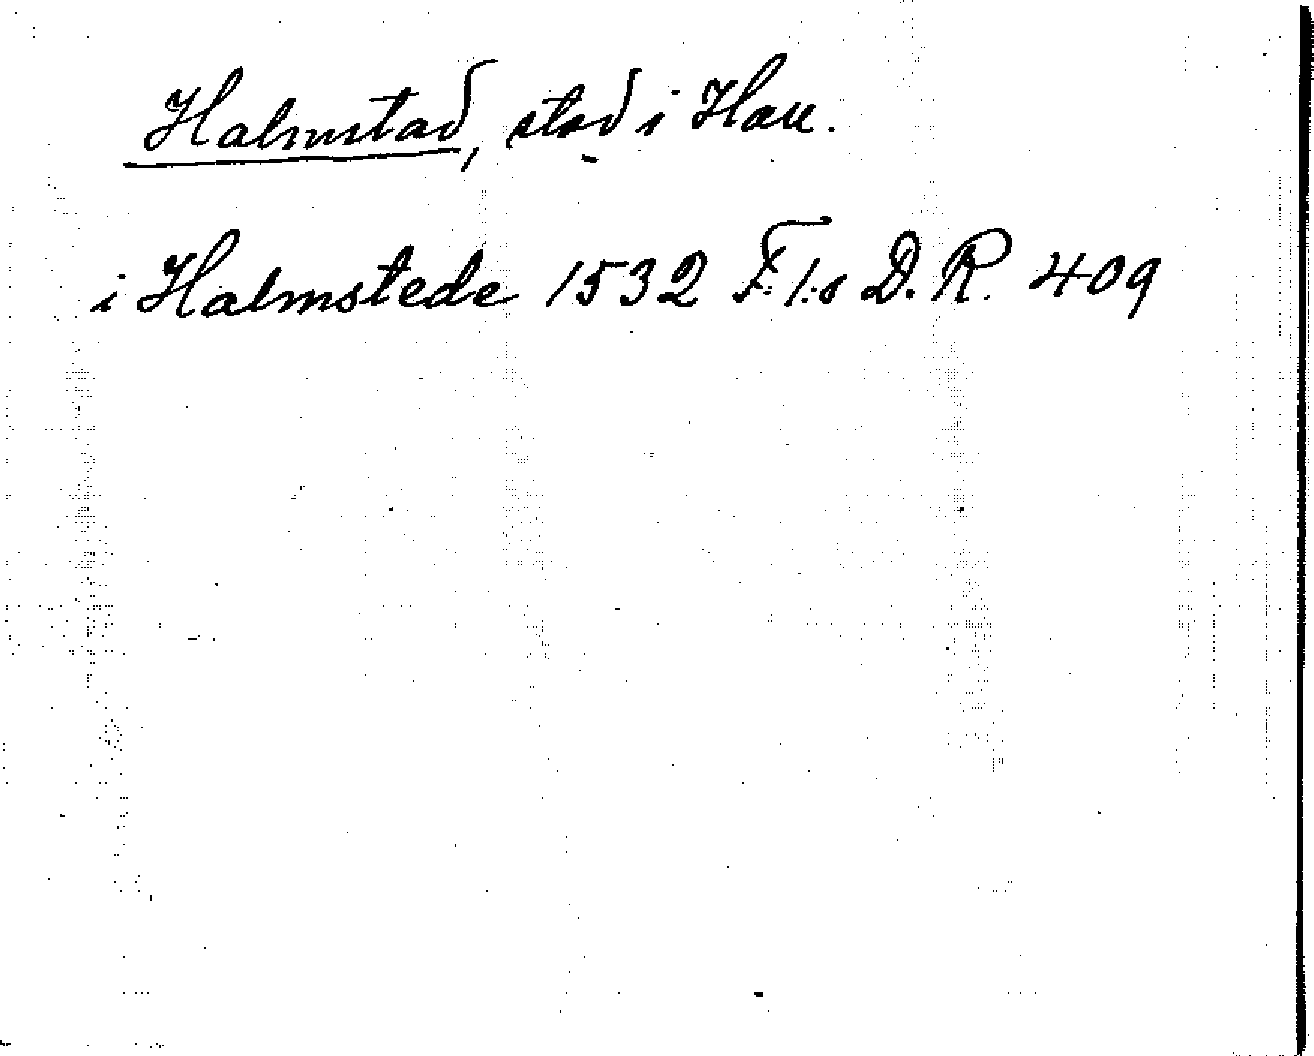 Halmstad, stad i Hall.
i Halmstede 1532 F. I:s D. R. 409